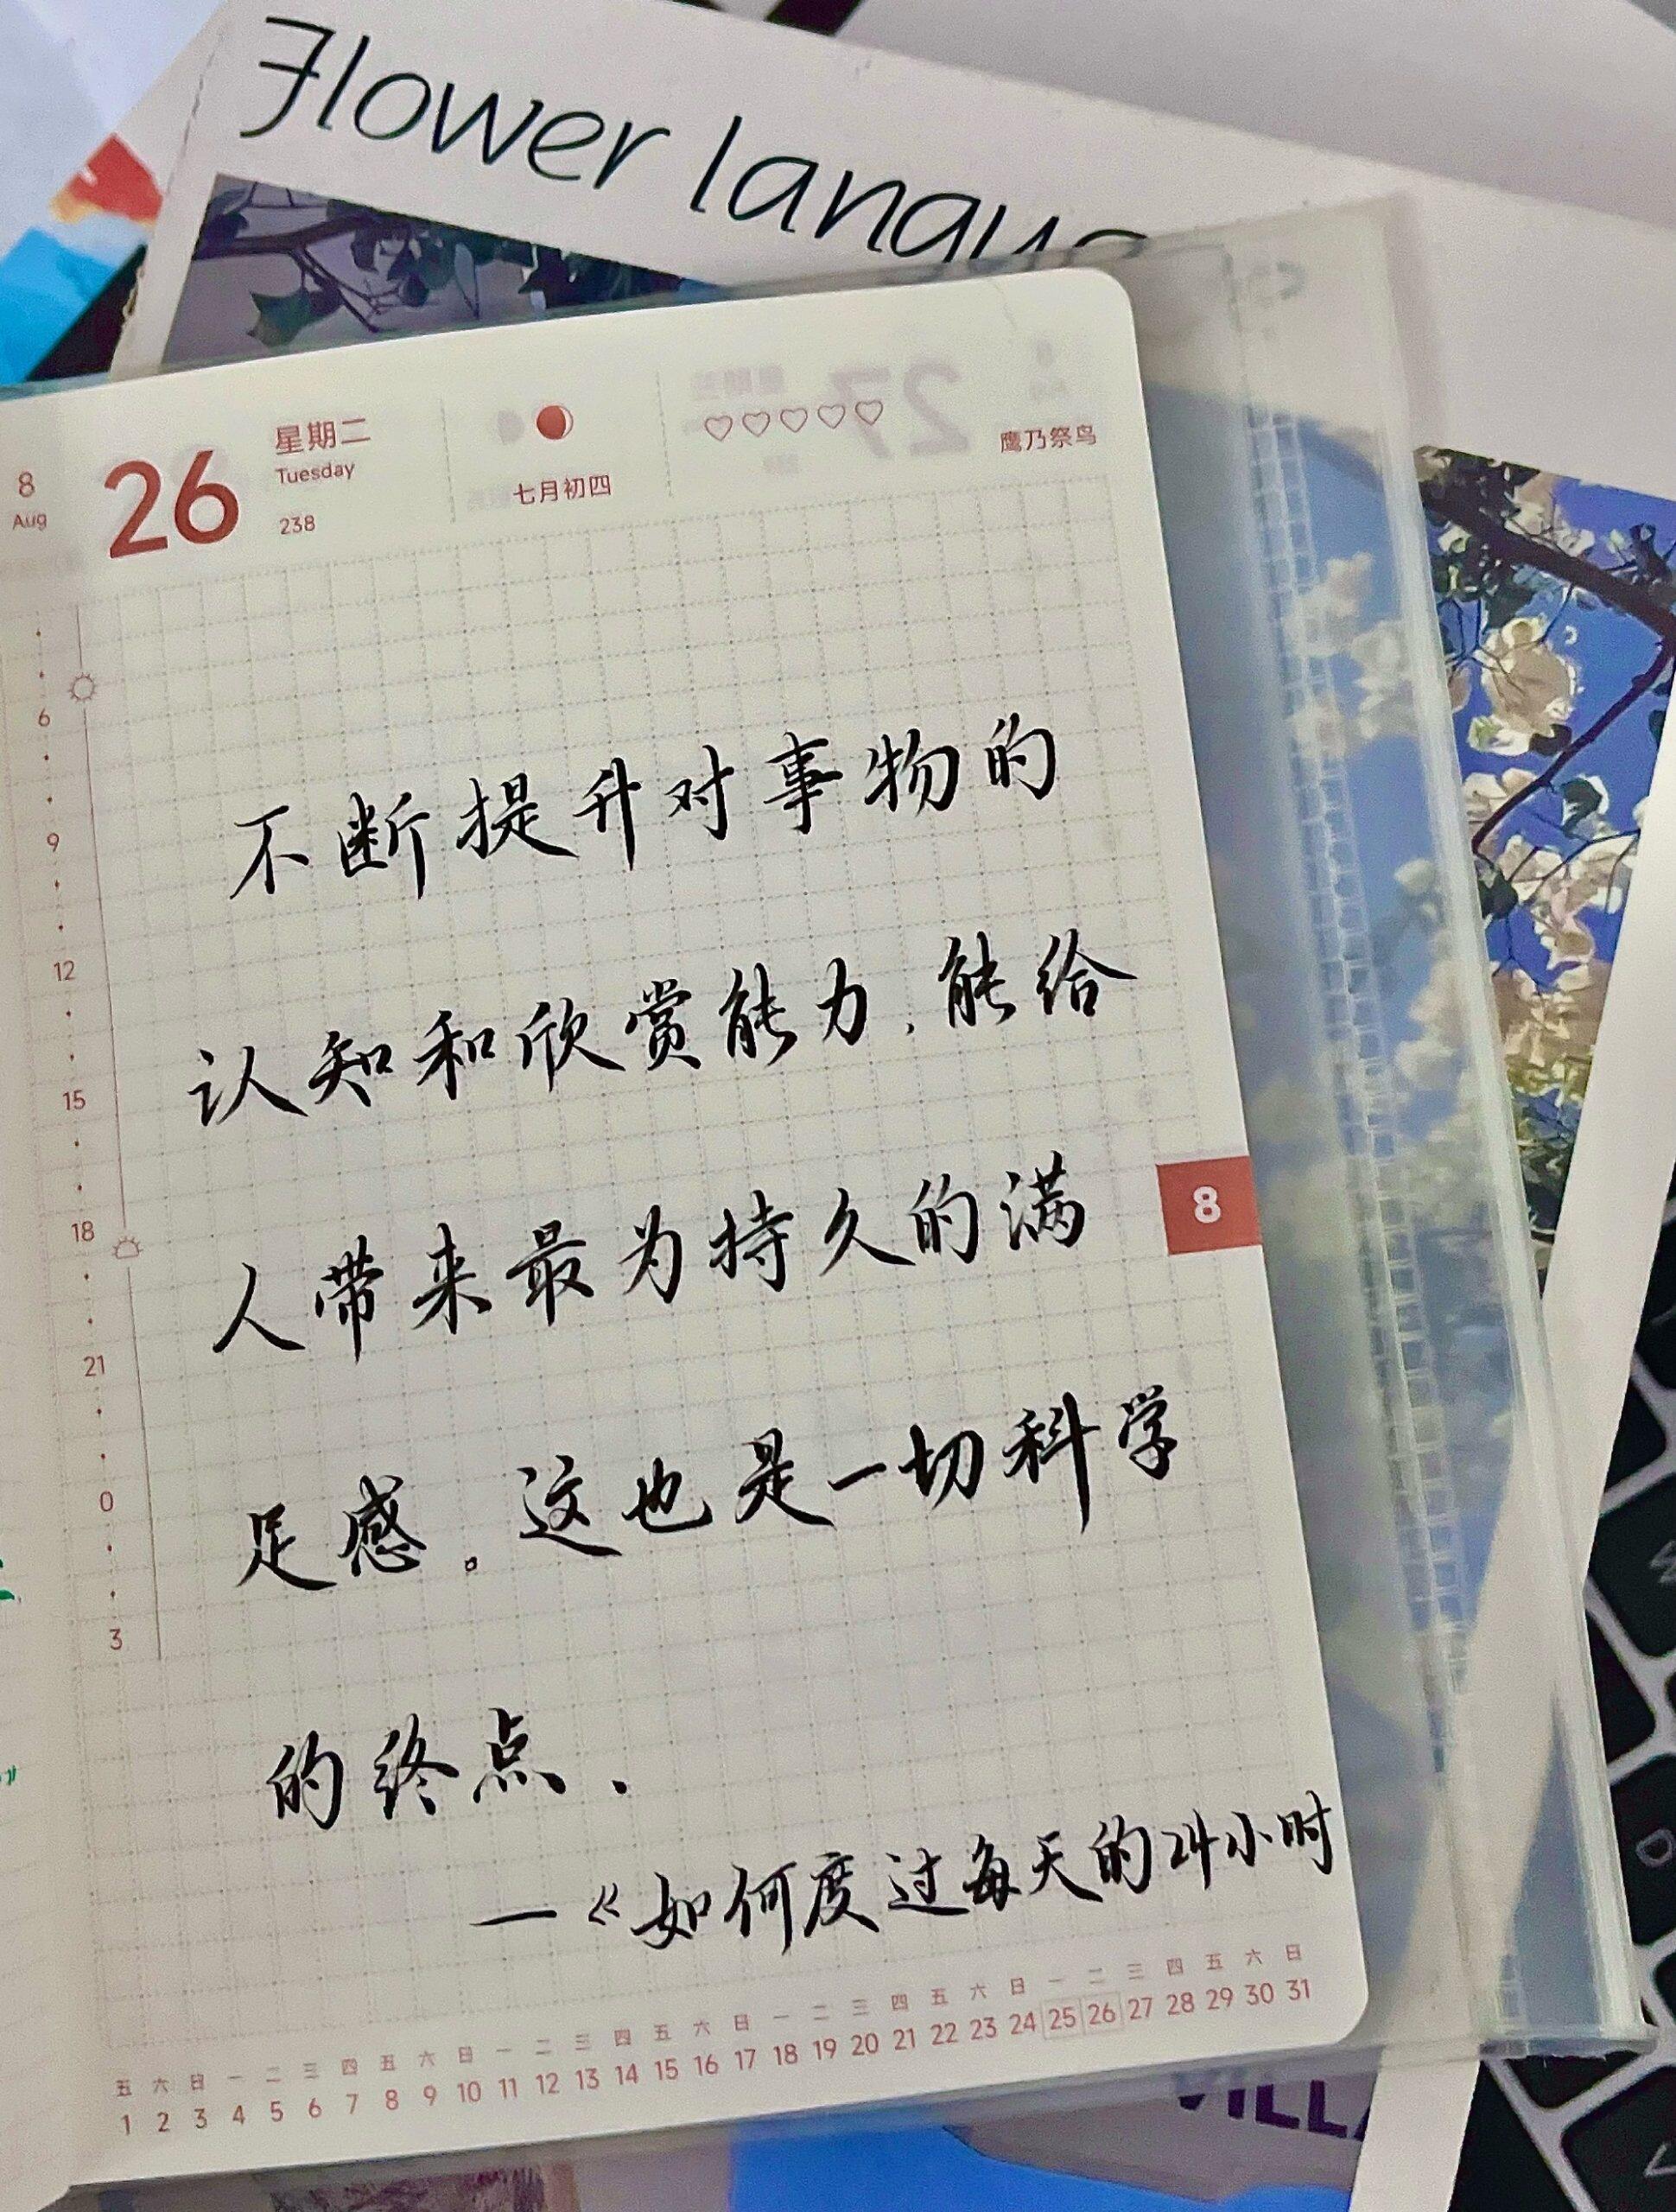 Flower langua
8
Aug
26
星期二
Tuesday
238
七月初四
♡♡♡♡♡
鹰乃祭鸟
6
9
12
15
18
21
0
3
不断提升对事物的
认知和欣赏能力、能给
人带来最为持久的满
足感。这也是一切科学
的终点、
—《如何度过每天的24小时
8
五 六 日 一 二 三 四 五 六 日 一 二 三 四 五 六 日 一 二 三 四 五 六 日 一 二 三 四 五 六 日
1 2 3 4 5 6 7 8 9 10 11 12 13 14 15 16 17 18 19 20 21 22 23 24 25 26 27 28 29 30 31
VILLA